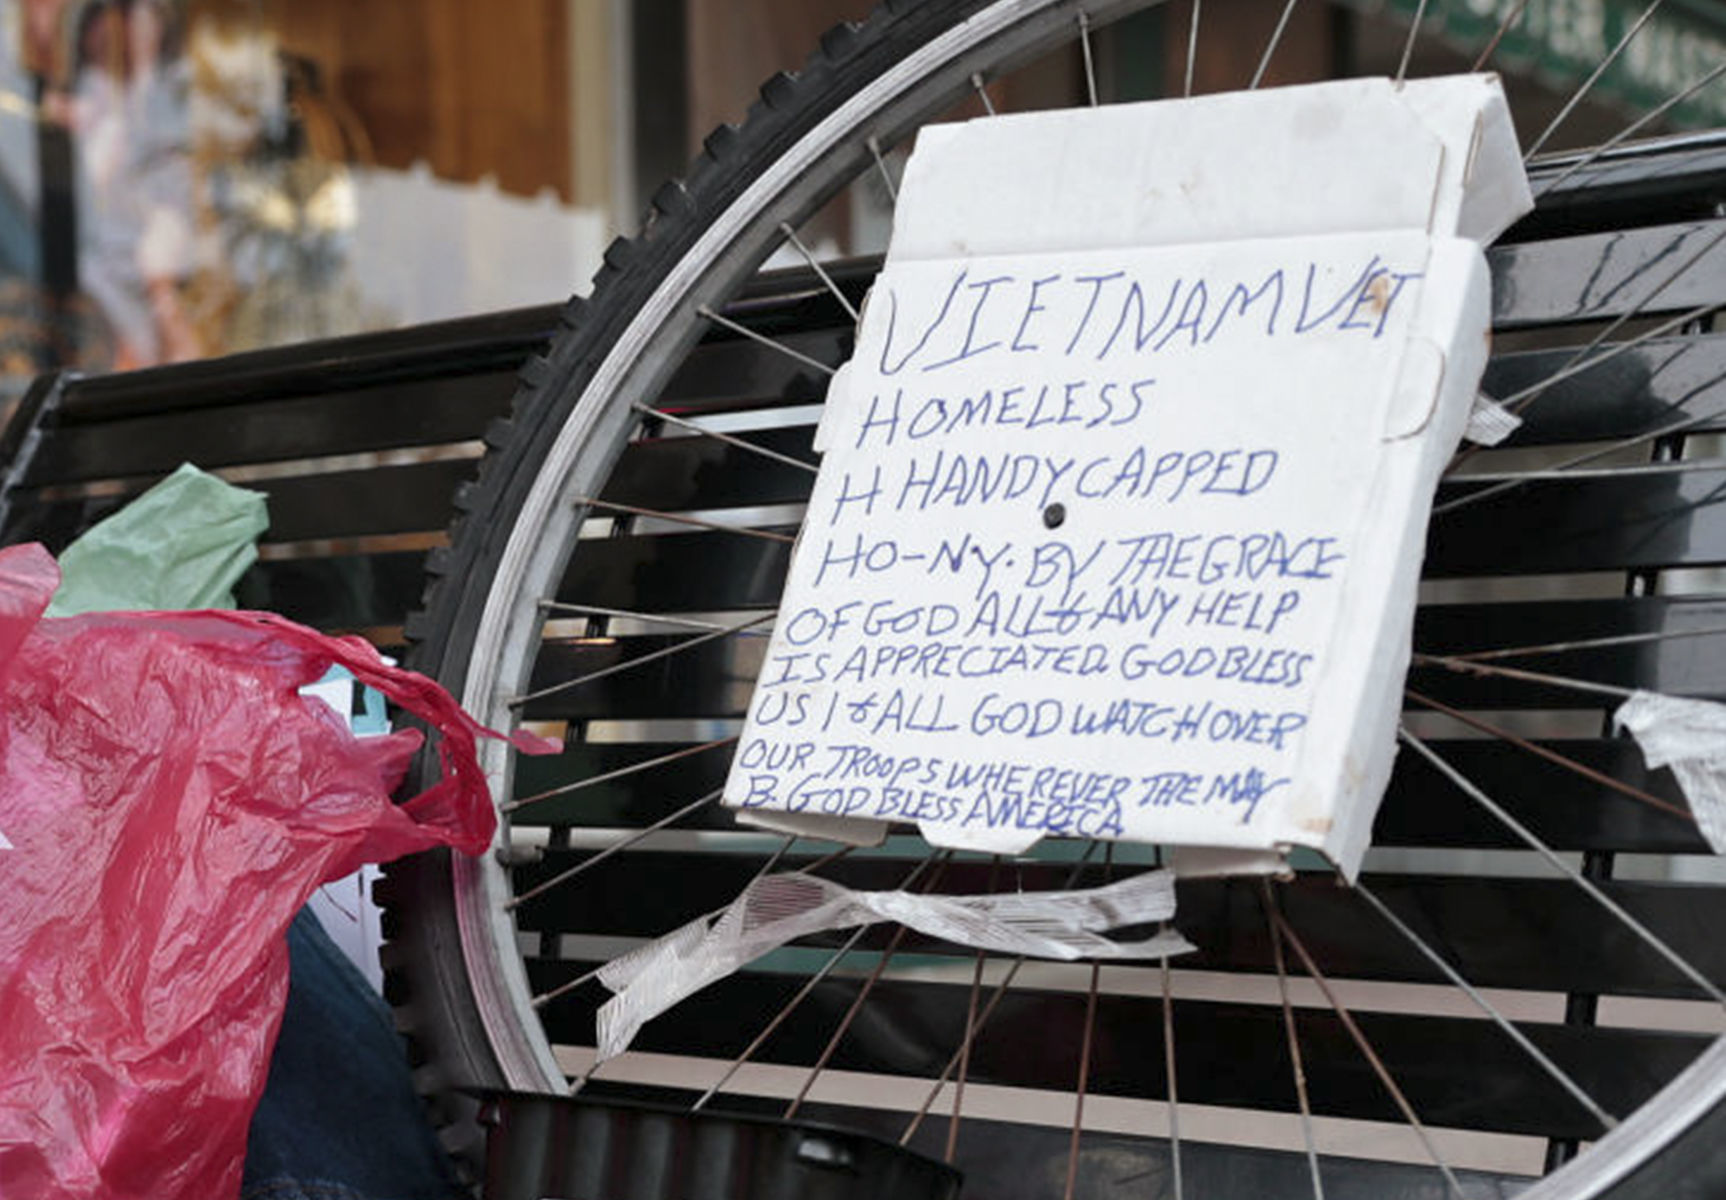 VIETNAM VET
HOMELESS
H HANDYCAPPED
HO-NY. BY THE GRACE
OF GOD ALL & ANY HELP
IS APPRECIATED. GOD BLESS
US 1 & ALL GOD WATCH OVER
OUR TROOPS WHEREVER THE MAY
B. GOD BLESS AMERICA